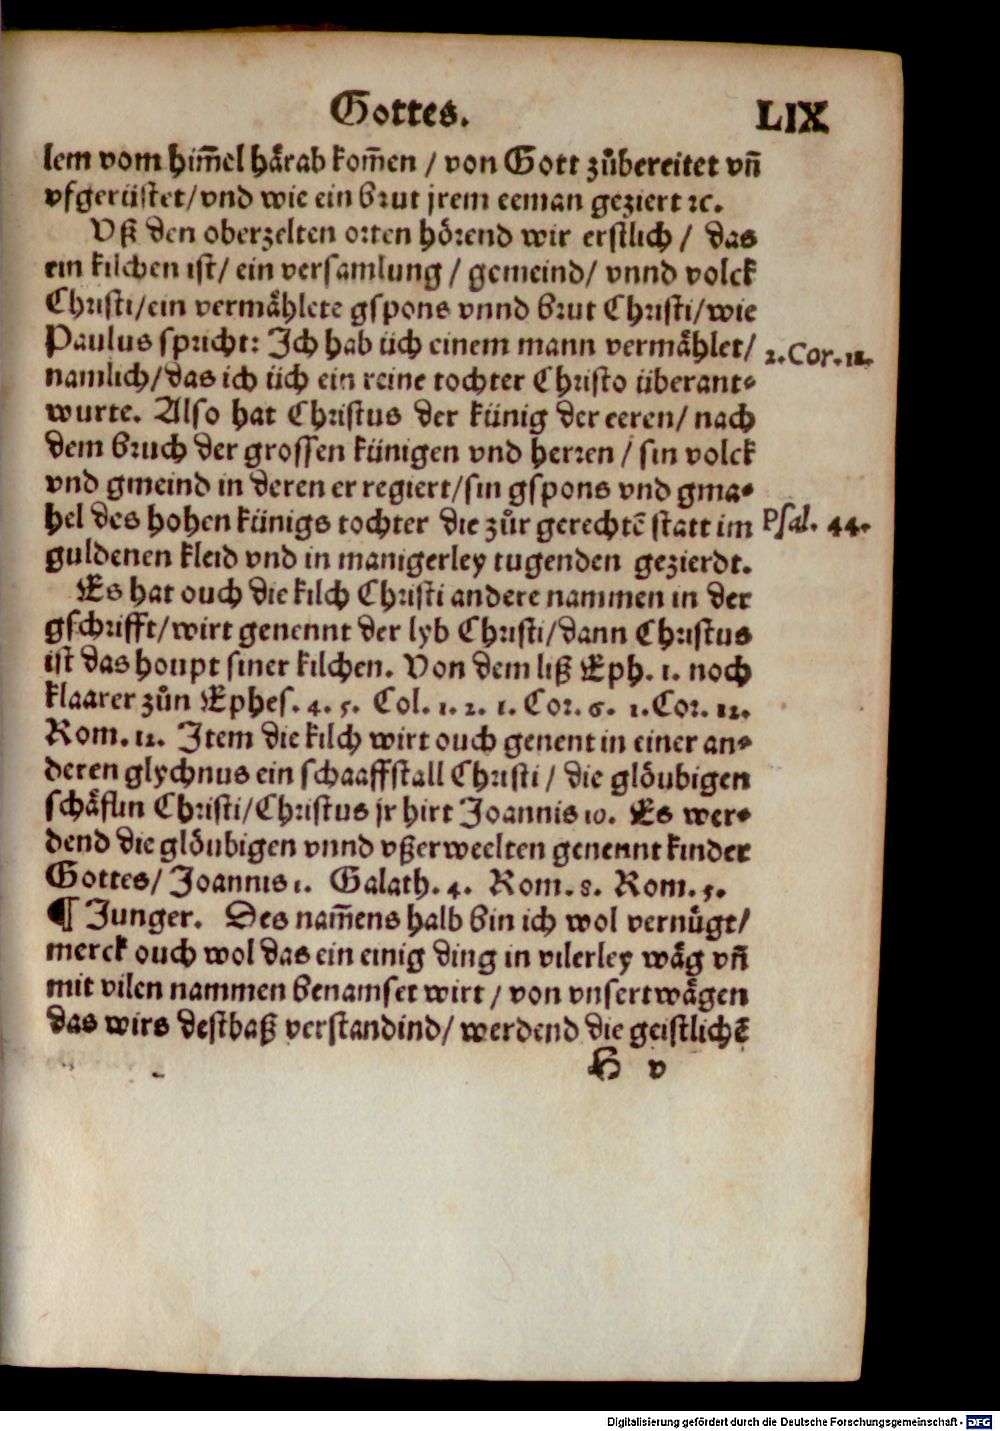 Gottes. LIX
lem vom him̄el hårab kom̄en / von Gott zůbereitet vn̄
vfgerüstet/vnd wie ein brut jrem eeman geziert ꝛc.
Vß den oberzelten orten hörend wir erstlich / das
ein kilchen ist/ ein versamlung / gemeind/ vnnd volck
Christi/ein vermählete gspons vnnd brut Christi/wie
Paulus spricht: Ich hab üch einem mann vermählet/ 2.Cor.11.
namlich/das ich üch ein reine tochter Christo überant⸗
wurte. Also hat Christus der künig der eeren/ nach
dem bruch der grossen künigen vnd herren / sin volck
vnd gmeind in deren er regiert/sin gspons vnd gma⸗
hel des hohen künigs tochter die zůr gerechtē statt im Psal. 44.
guldenen kleid vnd in manigerley tugenden gezierdt.
Es hat ouch die kilch Christi andere nammen in der
gschrifft/wirt genennt der lyb Christi/dann Christus
ist das houpt siner kilchen. Von dem liß Eph. 1. noch
klaarer zůn Ephes. 4. 5. Col. 1. 2. 1. Cor. 6. 1.Cor. 12.
Rom. 12. Item die kilch wirt ouch genent in einer an⸗
deren glychnus ein schaaffstall Christi / die glöubigen
schäflin Christi/Christus jr hirt Joannis 10. Es wer⸗
dend die glöubigen vnnd vßerweelten genennt kinder
Gottes/ Joannis 1. Galath. 4. Rom. 8. Rom. 5.
¶ Junger. Des nam̄ens halb bin ich wol vernůgt/
merck ouch wol das ein einig ding in vilerley wåg vn̄
mit vilen nammen benamset wirt / von vnsertwågen
das wirs destbaß verstandind/ werdend die geistlichē
H v
Digitalisierung gefördert durch die Deutsche Forschungsgemeinschaft - DFG